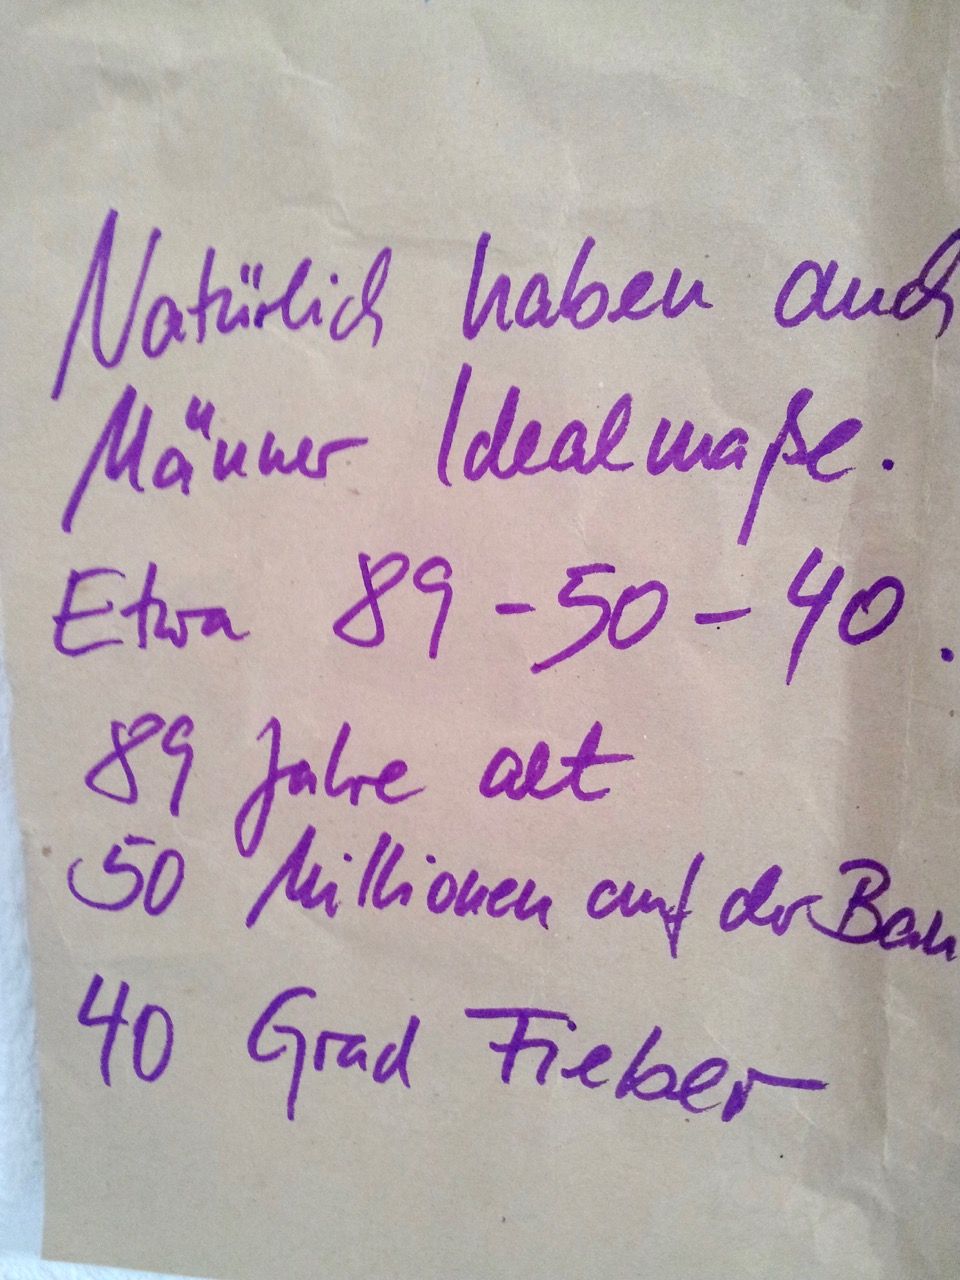 Natürlich haben auch
Männer Idealmaße.
Etwa 89-50-40.
89 Jahre alt
50 Millionen auf der Ban
40 Grad Fieber